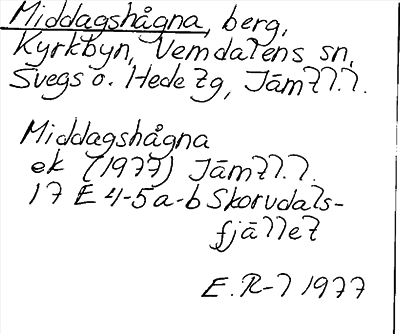 Middagshågna, berg,
Kyrkbyn, Vemdalens sn,
Svegs o. Hede tg, Jämtl.l.
Middagshågna
ek (1977) Jämtl.l.
17 E 4-5a-b Skorvdals-
fjället
E.R-l 1977